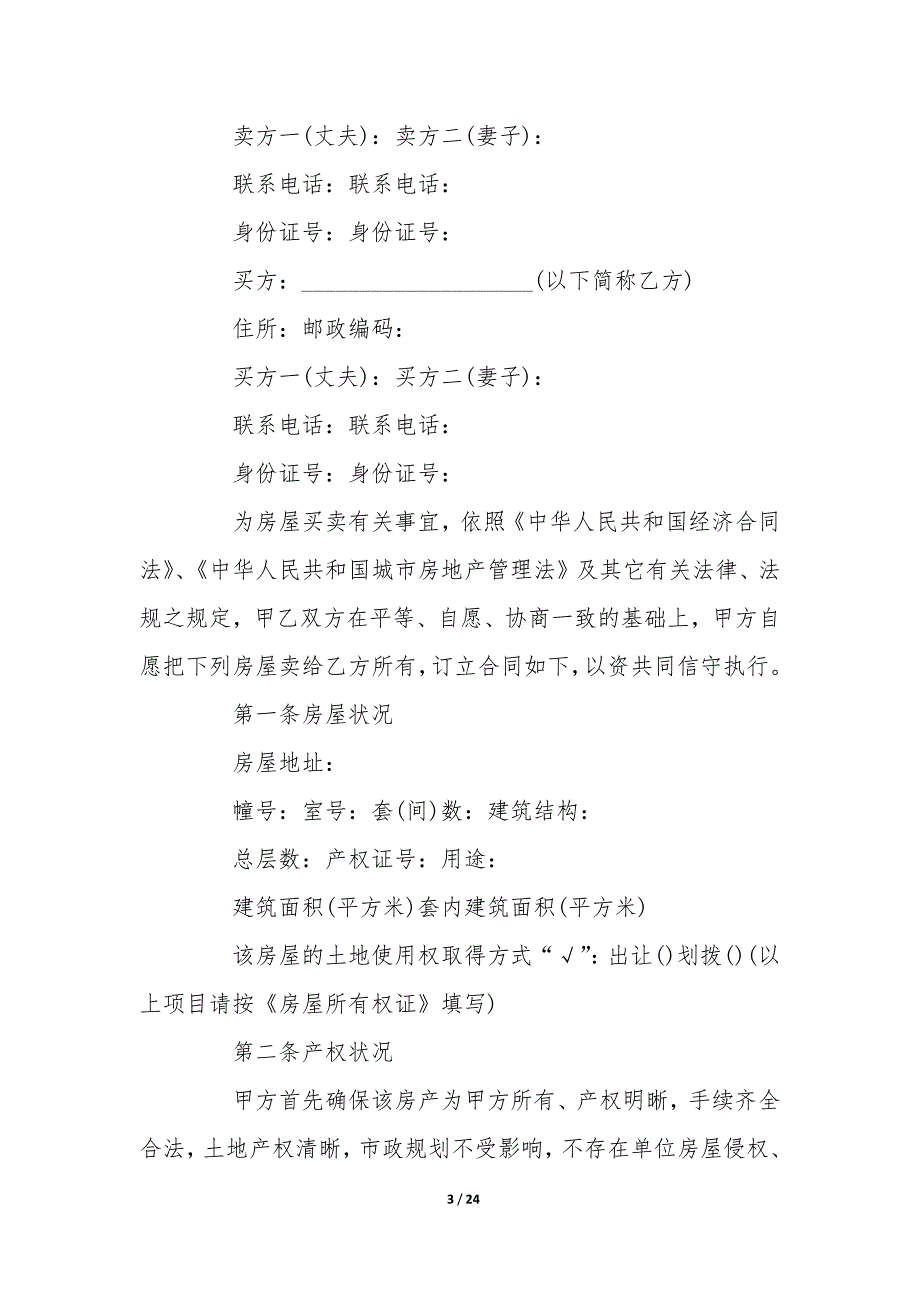 卖方一(丈夫)：卖方二(妻子)：
联系电话：联系电话：
身份证号：身份证号：
买方：____________________(以下简称乙方)
住所：邮政编码：
买方一(丈夫)：买方二(妻子)：
联系电话：联系电话：
身份证号：身份证号：
为房屋买卖有关事宜，依照《中华人民共和国经济合同
法》、《中华人民共和国城市房地产管理法》及其它有关法律、法
规之规定，甲乙双方在平等、自愿、协商一致的基础上，甲方自
愿把下列房屋卖给乙方所有，订立合同如下，以资共同信守执行。
第一条房屋状况
房屋地址：
幢号：室号：套(间)数：建筑结构：
总层数：产权证号：用途：
建筑面积(平方米)套内建筑面积(平方米)
该房屋的土地使用权取得方式“√”：出让()划拨()(以
上项目请按《房屋所有权证》填写)
第二条产权状况
甲方首先确保该房产为甲方所有、产权明晰，手续齐全
合法，土地产权清晰，市政规划不受影响，不存在单位房屋侵权、
3 / 24